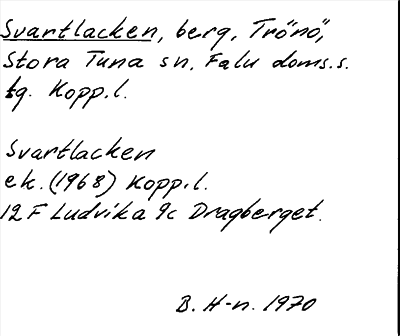 Svartlacken, berg, Trönö,
Stora Tuna sn, Falu doms.s.
tg. Kopp.l.
Svartlacken
ek. (1968) Kopp.l.
12 F Ludvika 9c Dragberget.
B. H-n. 1970